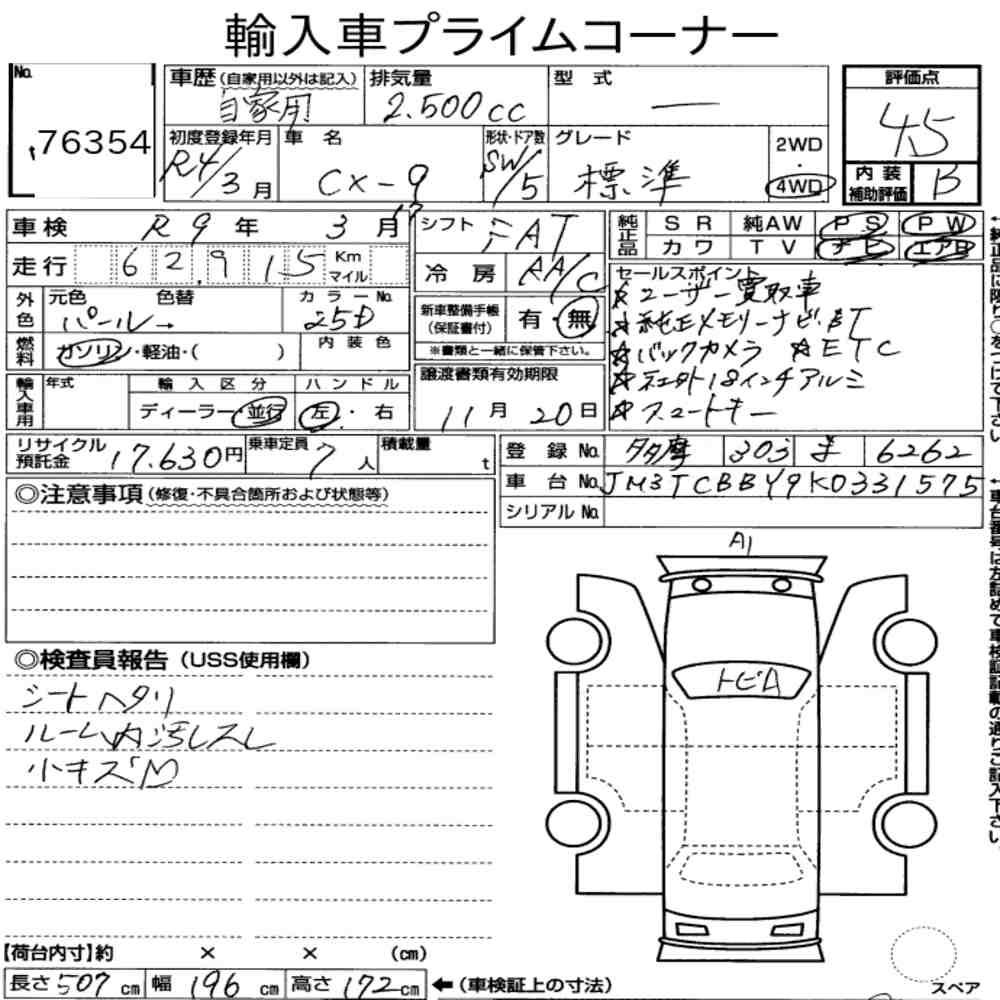 輸入車プライムコーナー
No. 76354
車歴 (自家用以外は記入) 自家用
排気量 2.500cc
型式 —
評価点 4.5
初度登録年月 R4/3月
車名 CX-9
形状・ドア数 SW/5
グレード 標準
2WD・4WD
内装補助評価 B
車検 R9年 3月
走行 62,915 Km マイル
シフト FAT
冷房 AA/C
純正品 SR 純AW PS PW
カワ TV ナビ エアB
外色 元色 色替 パール→
カラーNo. 25D
燃料 ガソリン・軽油・( )
内装色
新車整備手帳(保証書付) 有・無
※書類と一緒に保管下さい。
セールスポイント
☆ユーザー買取車
☆純正メモリーナビ・BT
☆バックカメラ ☆ETC
☆社外18インチアルミ
☆スマートキー
輸入車用 年式
輸入区分 ディーラー・並行
ハンドル 左・右
譲渡書類有効期限 11月20日
リサイクル預託金 17.630円
乗車定員 7人
積載量 t
登録No. 多摩 303 ま 6262
車台No. JM3TCBBY9K0331575
シリアルNo.
◎注意事項(修復・不具合箇所および状態等)
◎検査員報告(USS使用欄)
シートヘタリ
ルーム内汚レスレ
小キズ
A1
トビA
【荷台内寸】約 × × (cm)
長さ507cm 幅196cm 高さ172cm ←(車検証上の寸法)
スペア
↑純正品に限り○をつけて下さい。
↑車台番号は左詰めで車検証記載の通りご記入下さい。